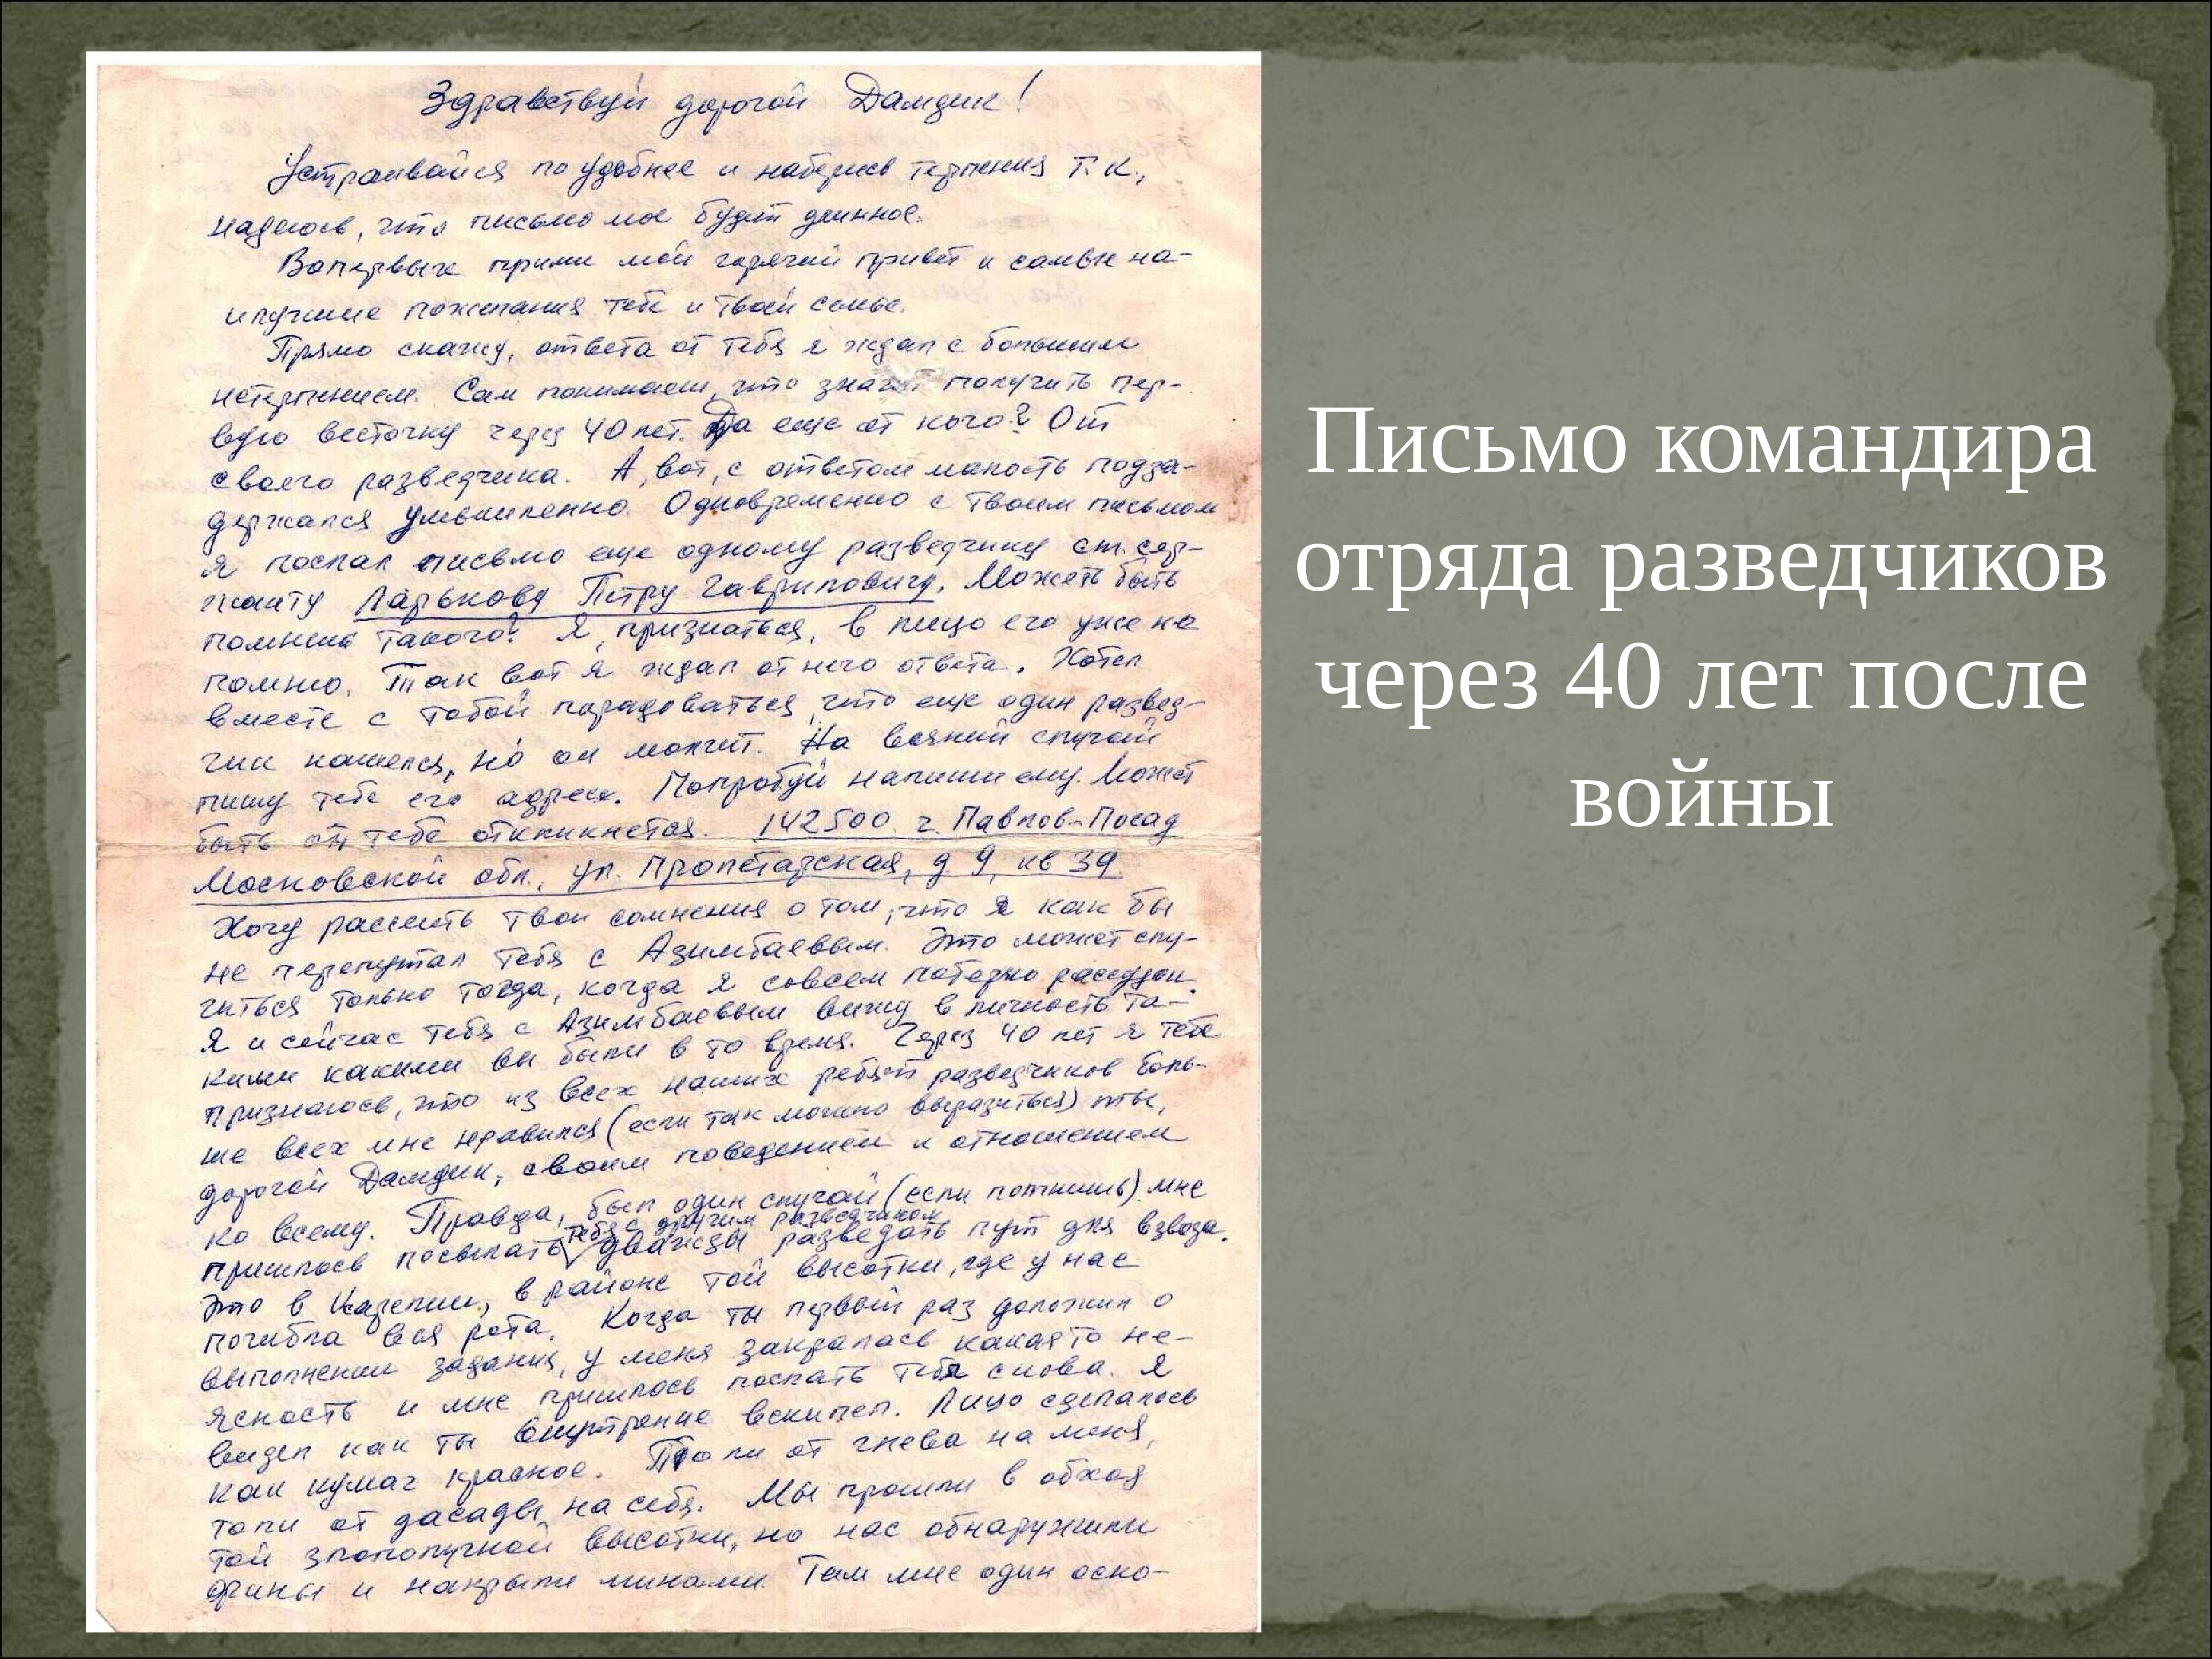 Здравствуй дорогой Дамдик!
Устраивайся по удобнее и наберись терпения т.к.,
надеюсь, что письмо мое будет длинное.
Вопервых прими мой горячий привет и самые на-
илучшие пожелания тебе и твоей семье.
Прямо скажу, ответа от тебя я ждал с большим
нетерпением. Сам понимаеш, что значит получить пер-
вую весточку через 40 лет. Да еще от кого? От
своего разведчика. А, вот, с ответом малость подза-
держался умышленно. Одновременно с твоим письмом
я послал письмо еще одному разведчику ст. сер-
жанту Ларькову Петру Гавриловичу. Может быть
помниш такого? Я, признаться, в лицо его уже не
помню. Так вот я ждал от него ответа. Хотел
вместе с тобой порадоваться, что еще один развед-
чик нашелся, но он молчит. На всякий случай
пишу тебе его адрес. Попробуй напиши ему. Может
быть он тебе откликнется. 142500 г. Павлов-Посад
Московской обл., ул. Пролетарская, д 9, кв 39.
Хочу рассеить твои сомнения о том, что я как бы
не перепутал тебя с Азимбаевым. Это может слу-
читься только тогда, когда я совсем потеряю рассудок.
Я и сейчас тебя с Азимбаевым вижу в личность та-
кими какими вы были в то время. Через 40 лет я тебе
признаюсь, что из всех наших ребят разведчиков боль-
ше всех мне нравился (если так можно выразиться) ты,
дорогой Дамдик, своим поведением и отношением
ко всему. Правда, был один случай (если помнишь) мне
пришлось посылать тебя с другим разведчиком дважды разведать путь для взвода.
Это в Карелии, в районе той высотки, где у нас
погибла вся рота. Когда ты первый раз доложил о
выполнении задания, у меня закралась какая то не-
ясность и мне пришлось послать тебя снова. Я
видел как ты внутренне вскипел. Лицо сделалось
как кумач красное. То ли от гнева на меня,
то ли от досады на себя. Мы прошли в обход
той злополучной высотки, но нас обнаружили
фины и накрыли минами. Там мне один оско-
Письмо командира
отряда разведчиков
через 40 лет после
войны